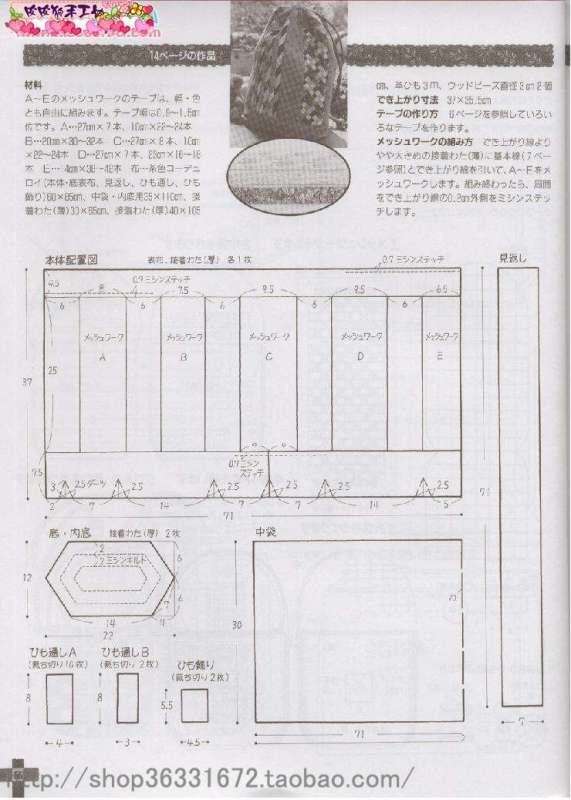 14ページの作品
材料
A～Eのメッシュワークのテープは、幅・色
とも自由に組みます。テープ幅は0.8～1.5cm
位です。A…27cm×7本、10cm×22～24本
B…20cm×30～32本 C…27cm×8本、10cm
×22～24本 D…27cm×7本、23cm×16～18
本 E…4cm×38～42本 布…茶色コーデュ
ロイ(本体・底表布、見返し、ひも通し、ひも
飾り)60×85cm、中袋・内底用35×110cm、接
着わた(薄)30×85cm、接着わた(厚)40×105
cm、革ひも3m、ウッドビーズ直径3cm2個
でき上がり寸法 37×35.5cm
テープの作り方 6ページを参照していろい
ろなテープを作ります。
メッシュワークの組み方 でき上がり線より
やや大きめの接着わた(薄)に基本線(7ペー
ジ参照)とでき上がり線を引いて、A～Eをメ
ッシュワークします。組み終わったら、周囲
をでき上がり線の0.2cm外側をミシンステッ
チします。
本体配置図 表布、接着わた(厚) 各1枚
0.7ミシンステッチ
見返し
4.5 0.9ミシンステッチ
6 6 7.5 6 9.5 6 8.5 6 6.5
メッシュワーク A
メッシュワーク B
メッシュワーク C
メッシュワーク D
メッシュワーク E
37
25
71
0.7ミシン
ステッチ
7.5
3 2.5ダーツ 2.5 2.5 2.5 2.5 2.5
2 7 14 7 7 14 5
71
底・内底 接着わた(厚) 2枚
中袋
2
2ミシンキルト
12
6
6
7
14 4
22
30
ひも通しA
(裁ち切り16枚)
ひも通しB
(裁ち切り2枚)
ひも飾り
(裁ち切り2枚)
8
8
5.5
4
3
4.5
71
7
http://shop36331672.taobao.com/